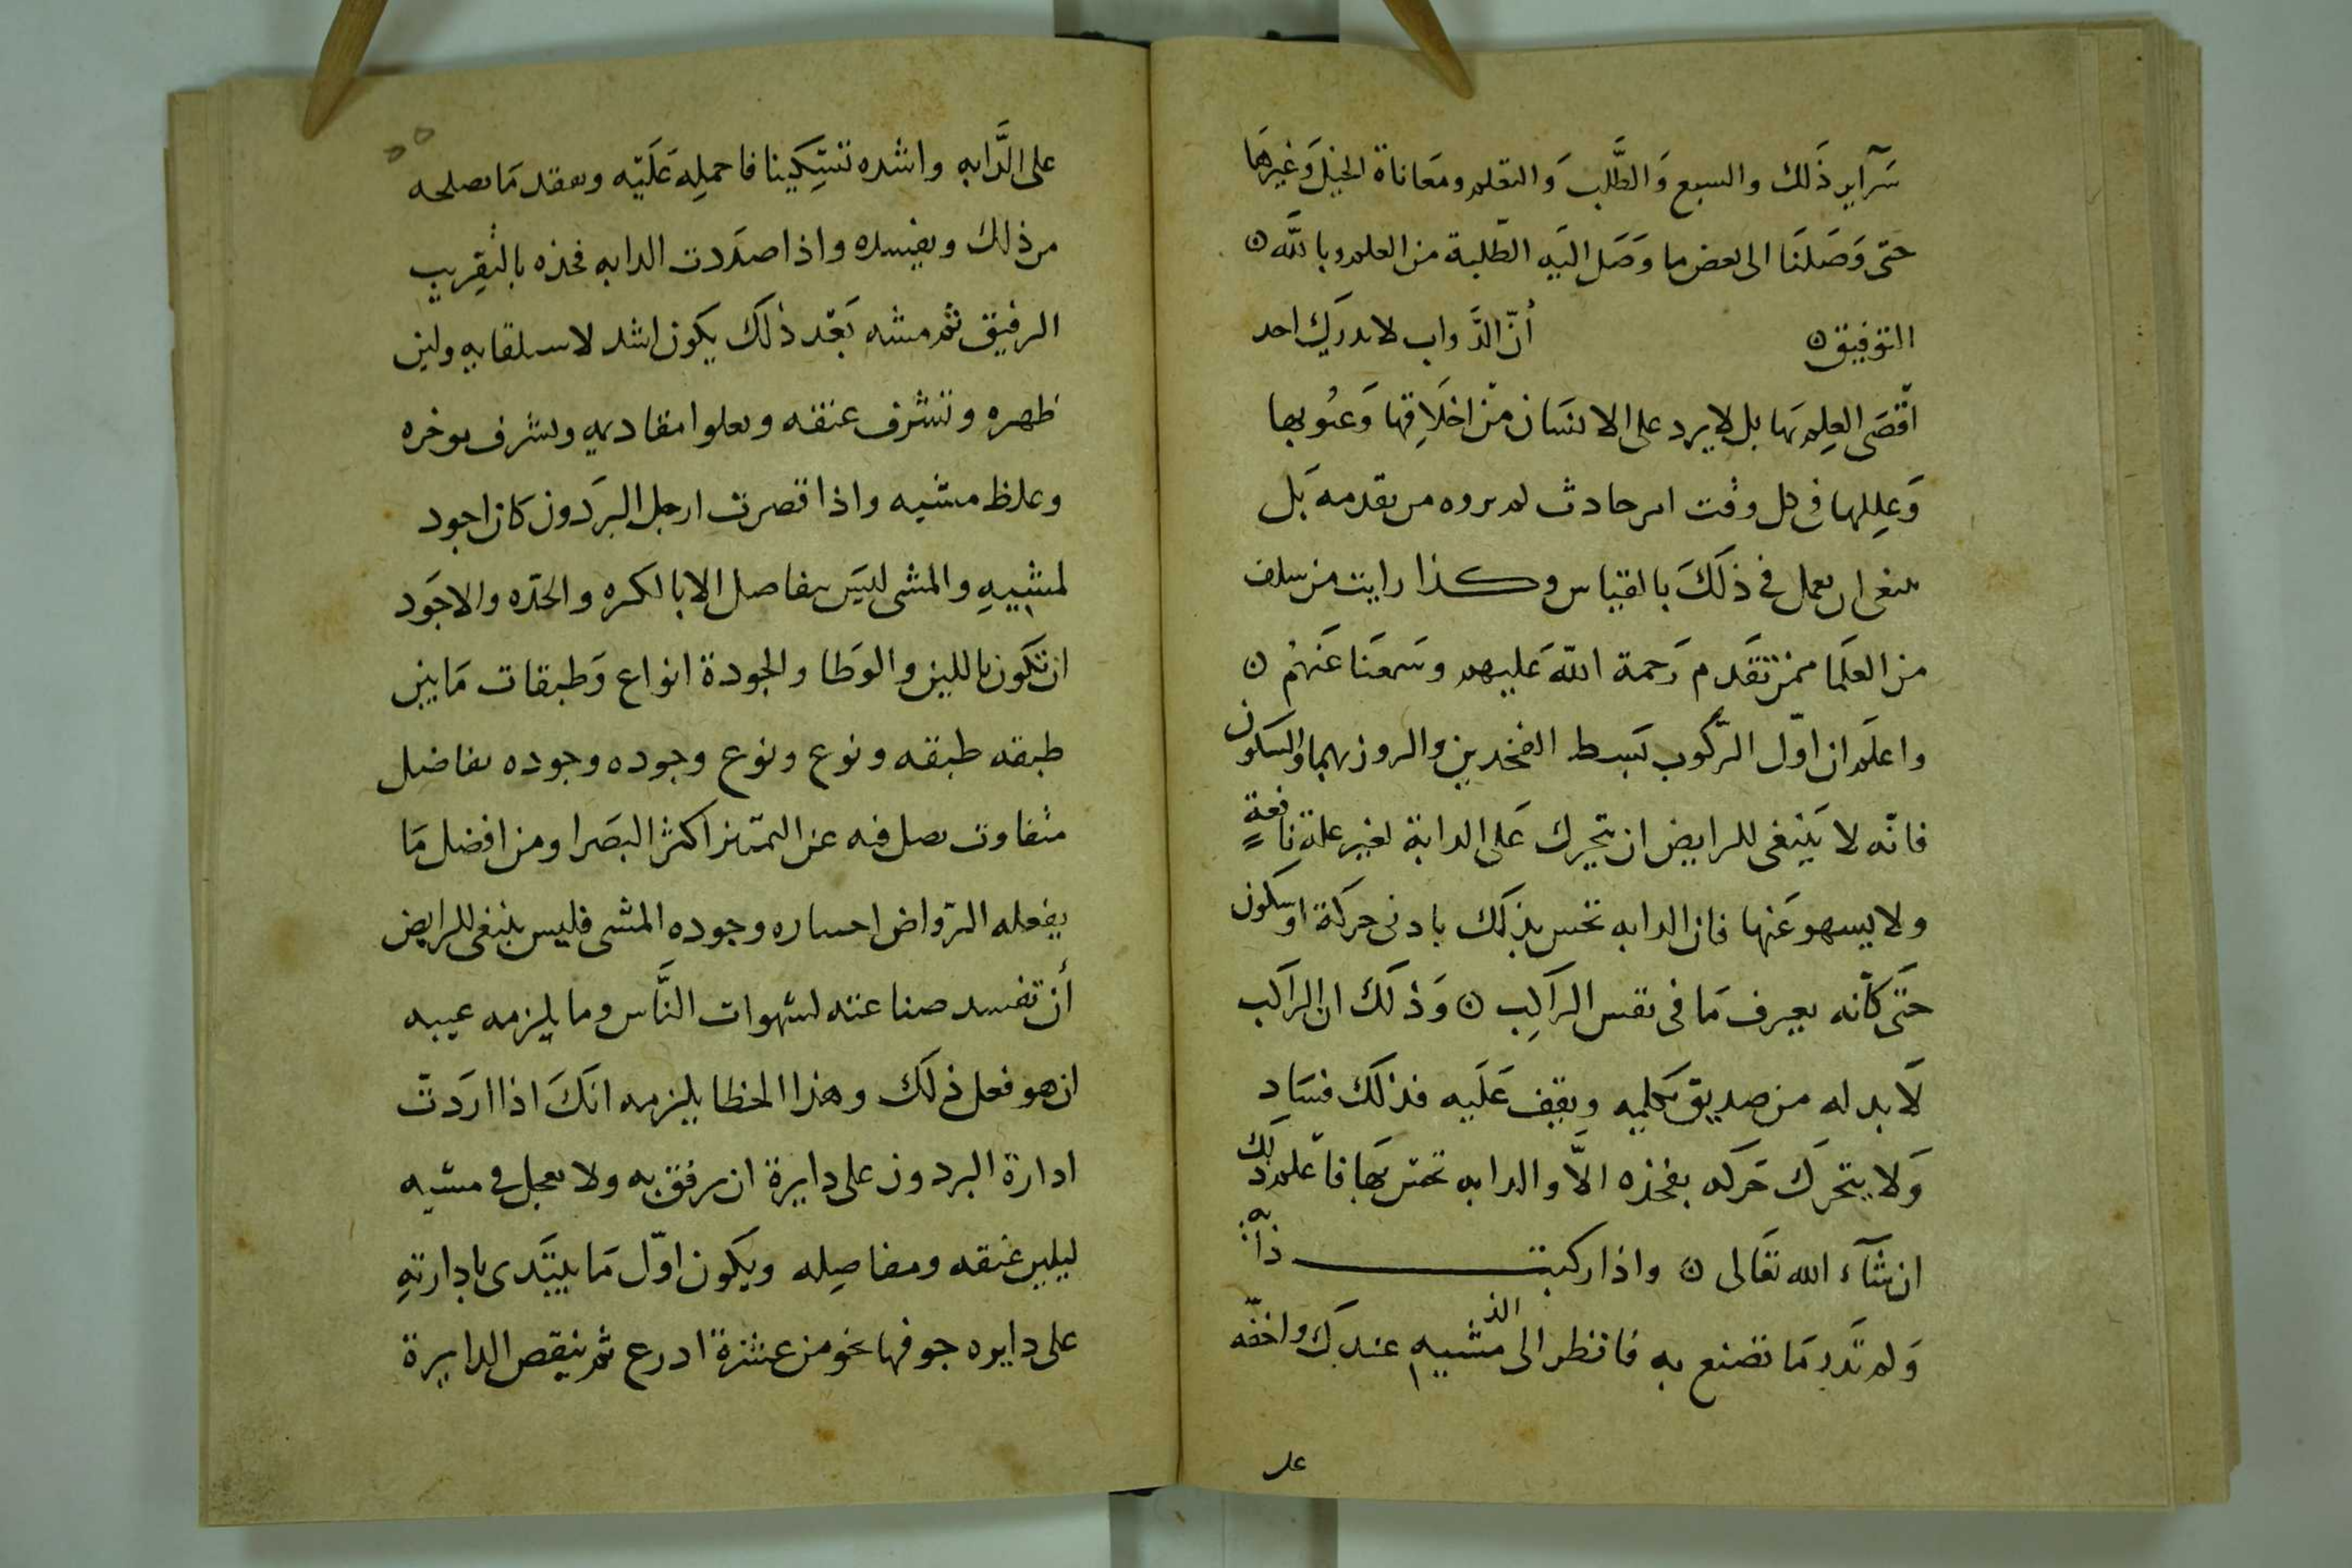 سَرآير ذَلك والسبع وَالطَّلب وَالتعلم ومعَاناة الخيل وَغيرهَا
حتى وَصَلنَا الى بعض ما وَصَل اليَه الطَّلبة من العلم وبالله
التوفيق أنّ الدَّواب لا يدرك احد
اقْصَى العِلم بهَا بل لا يرد على الانسَان من اخلَاقها وَعيُوبها
وَعِللها فى كل وقت امر حادث لم يروه من تقدمه بَل
ينبغى ان يعمل في ذلكَ بالقياس وكذا رايت من سلف
من العلَما ممن تقدم رَحمة الله عَليهم وسَمعنَا عَنهُم
واعلَم ان اوّل الرّكوب بَسط الفخدين والروز بهما والسكون
فانّه لا يَنبغى للرايض ان يتحرك عَلى الدابة لغير علة نافعةٍ
ولا يسهو عَنها فان الدابه تحس بذلك بادنى حركة او سكون
حتَى كأنه يعرف مَا فى نفس الراكِب وَذلك ان الراكب
لَا بد له من صديق يكلمه ويقف عَلَيه فذلك فسَاد
وَلا يتحرك حَركه بفخذه الاَّ والدابه تحس بهَا فاعلم ذلك
ان شآء الله تعَالى واذا ركبت دابه
وَلم تَدر مَا تصنع به فانظر الى الذ مشيه عندك واخفّه
على
على الدَّابه واشده تسكينا فاحمله عَلَيه وتفقد مَا يصلحه
من ذلك ويفسده واذا صدَدت الدابه فخذه بالتقريب
الرفيق ثم مشه بَعْد ذلكَ يكون اشد لاستلقايه ولين
ظهره وتشرف عنقه ويعلوا مقاديمه ويشرف موخره
وغلظ مشيه واذا قصرت ارجل البرَدون كان اجود
لمشيهِ والمشى ليسَ يتفاصل الا بالكره والحدّه والاجَود
ان تكون باللين والوَطا والجودة انواع وَطبقات مَا بين
طبقه طبقه ونوع ونوع وجوده وجوده تفاضل
متفاوت يصل فيه عن التميّز اكثر البصَرا ومن افضل مَا
يفعله الرّواض احساره وجوده المشى فليس ينبغى للرايض
أن تفسد صناعته لشهوات النَّاس وما يلزمه عيبه
ان هو فعل ذلكَ وهذا الخطا يلزمه انكَ اذا اردَت
ادارة البردون على دايرة ان ترفق به ولا تعجل فى مشيه
ليلين عنقه ومفاصِله ويكون اوّل مَا يبتَدى بادارتهِ
على دايره جوفها نحو من عشرة ادرع ثم ينقص الدايرة